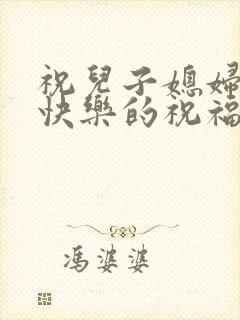 祝兒子媳婦
快樂的祝福
馮婆婆